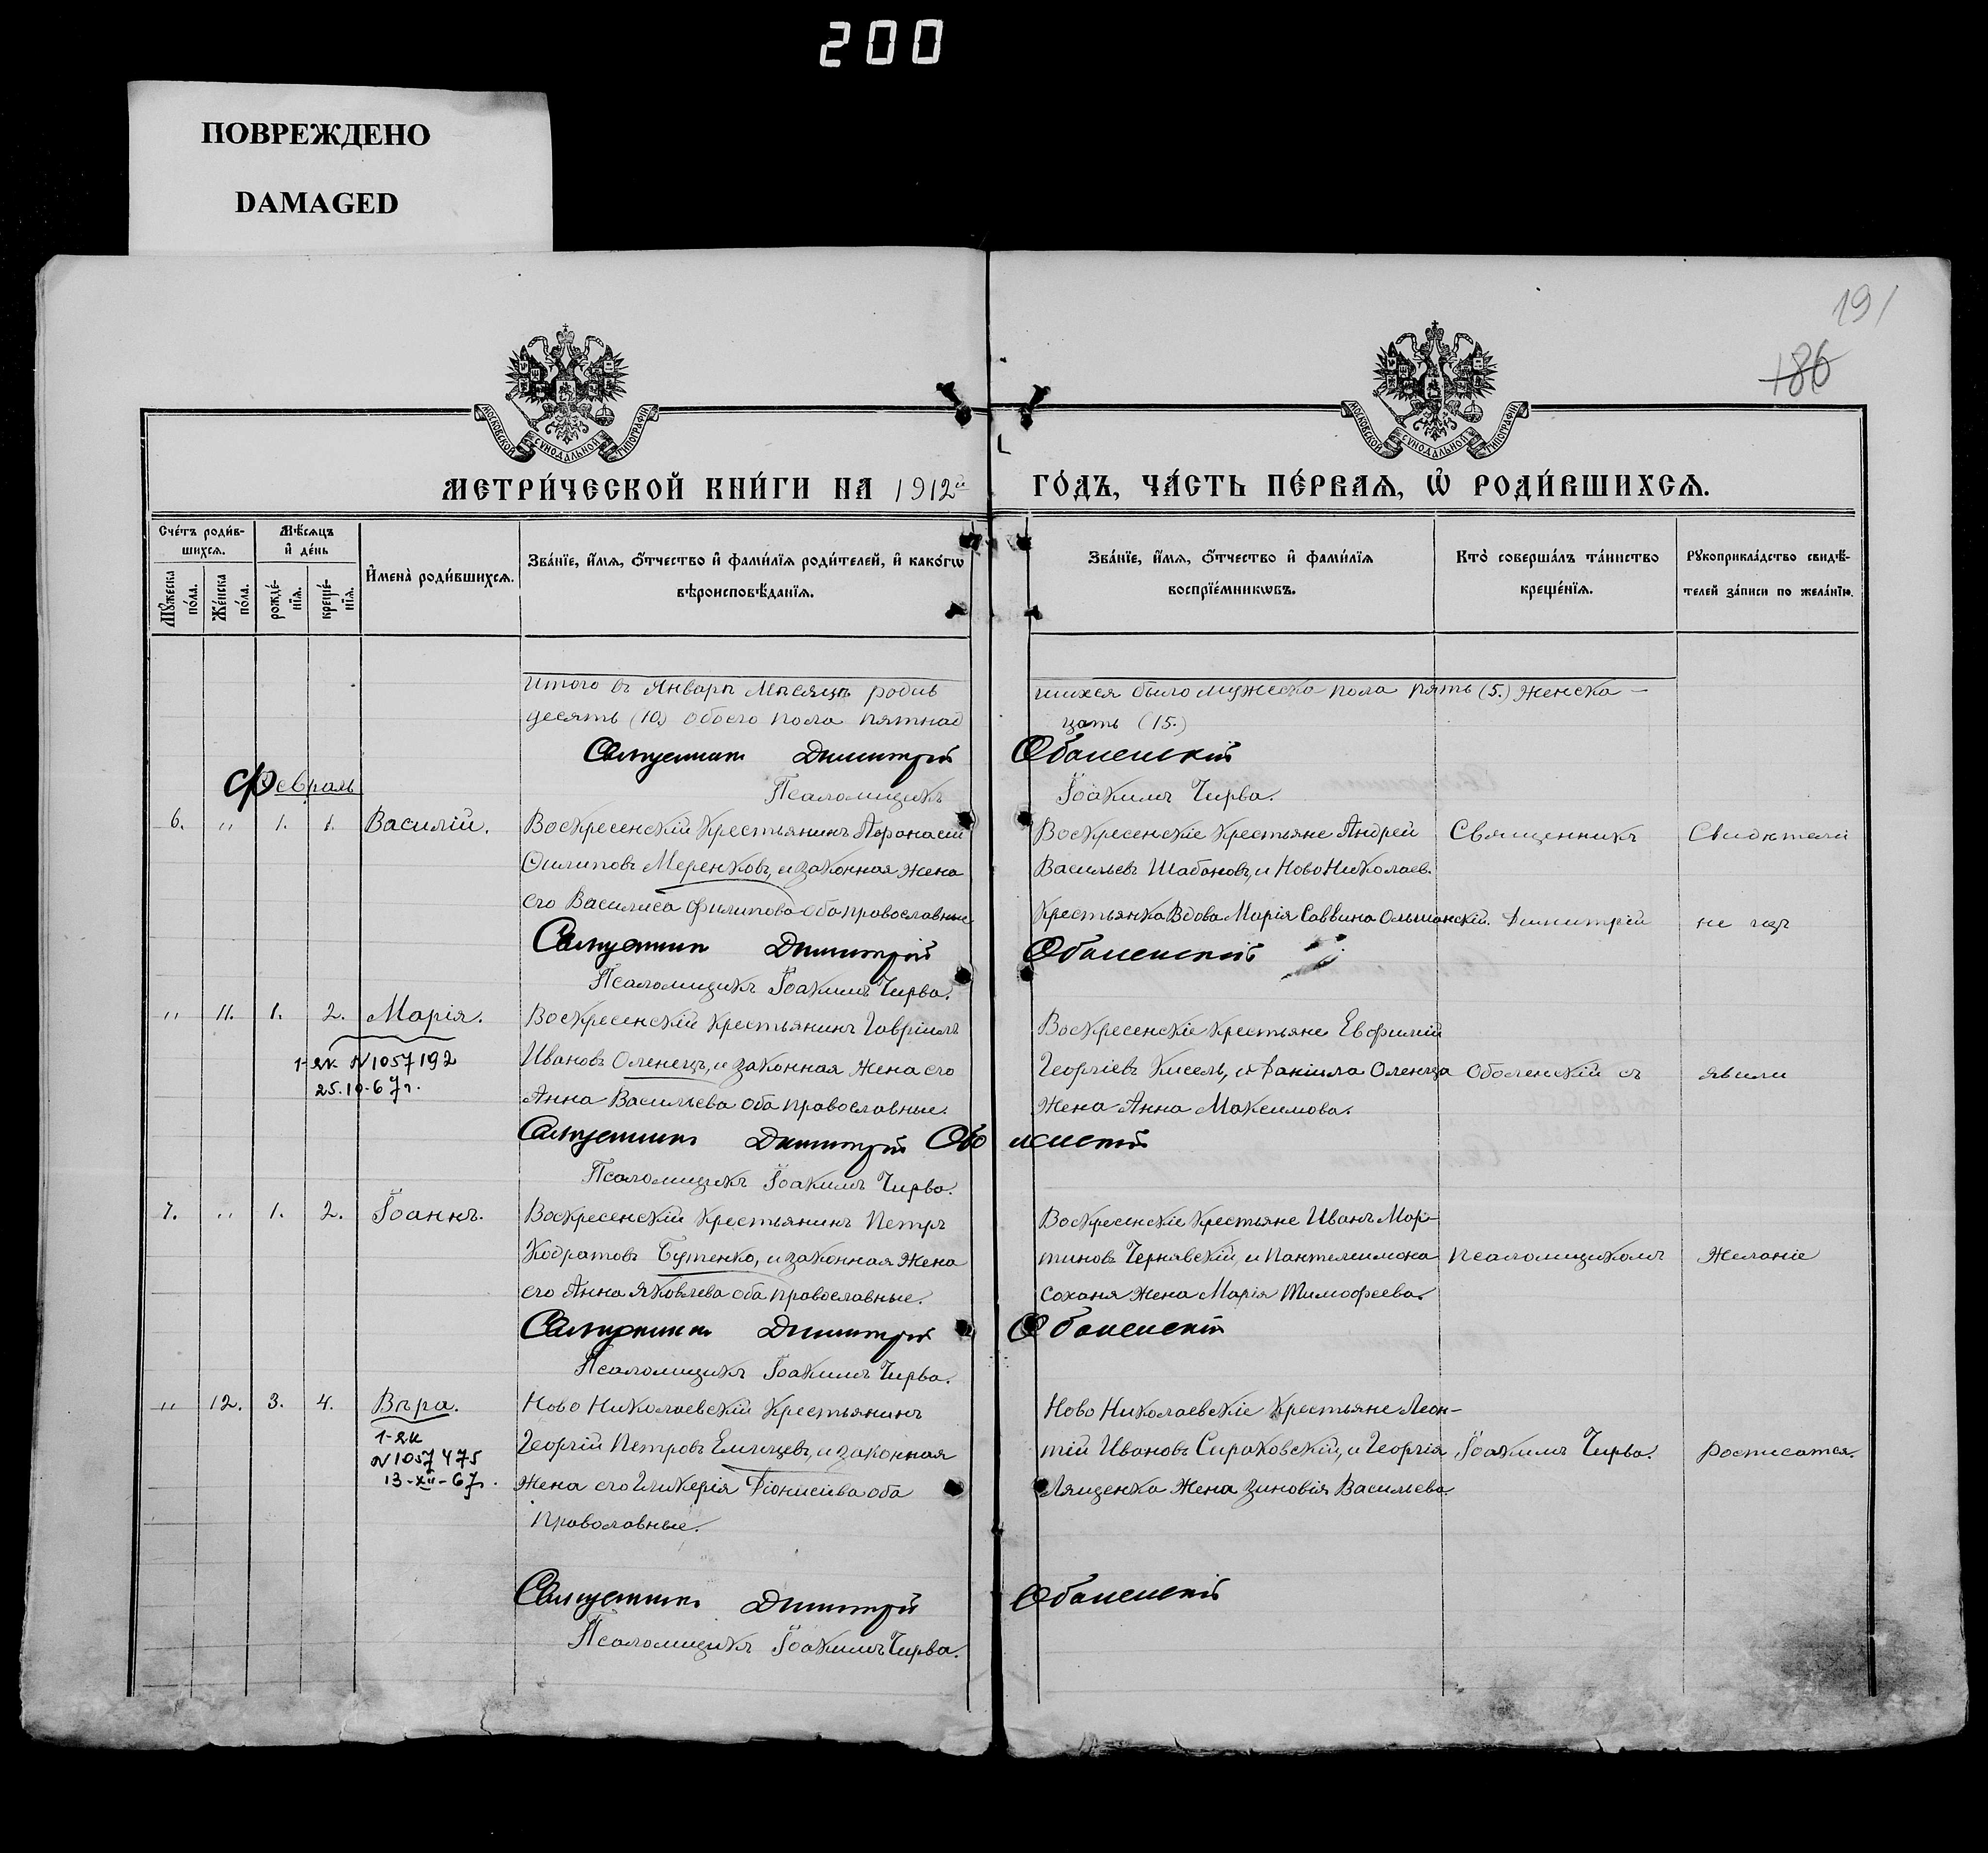 200
ПОВРЕЖДЕНО
DAMAGED
191
186
МОСКОВСКОЙ СѴНОДАЛЬНОЙ ТИПОГРАФІИ
МОСКОВСКОЙ СѴНОДАЛЬНОЙ ТИПОГРАФІИ
МЕТРИ́ЧЕСКОЙ КНИ́ГИ НА 1912й ГО́ДЪ, ЧА́СТЬ ПЕ́РВАЯ, Ѡ҆ РОДИ́ВШИХСЯ.
Сче́тъ роди́в-
шихся.
Мѣ́сяцъ
и҆ де́нь
Мꙋ́жеска по́ла.
Же́нска по́ла.
рожде́-
нїя.
креще́-
нїя.
И҆мена̀ роди́вшихся.
Зва́нїе, и҆́мя, ѻ҆́тчество и҆ фами́лїя роди́телей, и҆ како́гѡ
вѣроисповѣ́данїя.
Зва́нїе, и҆́мя, ѻ҆́тчество и҆ фами́лїя
воспрїе́мникѡвъ.
Кто̀ соверша́лъ та́инство
креще́нїя.
Рꙋкоприкла́дство свидѣ́-
телей за́писи по жела́нїю.
Итого въ Январѣ Мѣсяцѣ родив
шихся было мужеска пола пять (5.) Женска –
десять (10) обоего пола пятнад
цать (15.)
Священникъ Димитрій Оболенскій
Псаломщикъ Іоакимъ Чирва.
Февраль
6. " 1. 1. Василій.
Воскресенскій Крестьянинъ Афонасій
Филиповъ Меренковъ, и законная Жена
его Василиса Филипова оба православные
Воскресенскіе Крестьяне Андрей
Васильевъ Шабановъ, и Ново Николаев.
Крестьянка Вдова Марія Саввина Ольшанскій.
Священникъ
Димитрій
Свидѣтели
не гдѣ
Священникъ Димитрій Оболенскій
Псаломщикъ Іоакимъ Чирва.
" 11. 1. 2. Марія.
1-як №1057192
25.10.67г.
Воскресенскій Крестьянинъ Гавріилъ
Ивановъ Оленецъ, и законная Жена его
Анна Васильева оба православные.
Воскресенскіе Крестьяне Евфимій
Георгіевъ Кисель, и Даніила Оленца
Жена Анна Максимова.
Оболенскій съ
явили
Священникъ Димитрій Оболенскій
Псаломщикъ Іоакимъ Чирва.
7. " 1. 2. Іоаннъ.
Воскресенскій Крестьянинъ Петръ
Кодратовъ Бутенко, и законная Жена
его Анна Яковлева оба православные.
Воскресенскіе Крестьяне Иванъ Мар-
тиновъ Чернявскій, и Пантелеимона
Соханя Жена Марія Тимофеева.
псаломщикомъ
Желаніе
Священникъ Димитрій Оболенскій
Псаломщикъ Іоакимъ Чирва.
" 12. 3. 4. Вѣра.
1-як
№1057475
13-XII-67г.
Ново Николаевскій Крестьянинъ
Георгій Петровъ Емицевъ, и законная
Жена его Гликерія Діонисіева оба
Православные.
Ново Николаевскіе Крестьяне Леон-
тій Ивановъ Сираковскій, и Георгія
Лященка Жена Зиновія Васильева
Іоакимъ Чирва.
росписатся.
Священникъ Димитрій Оболенскій
Псаломщикъ Іоакимъ Чирва.